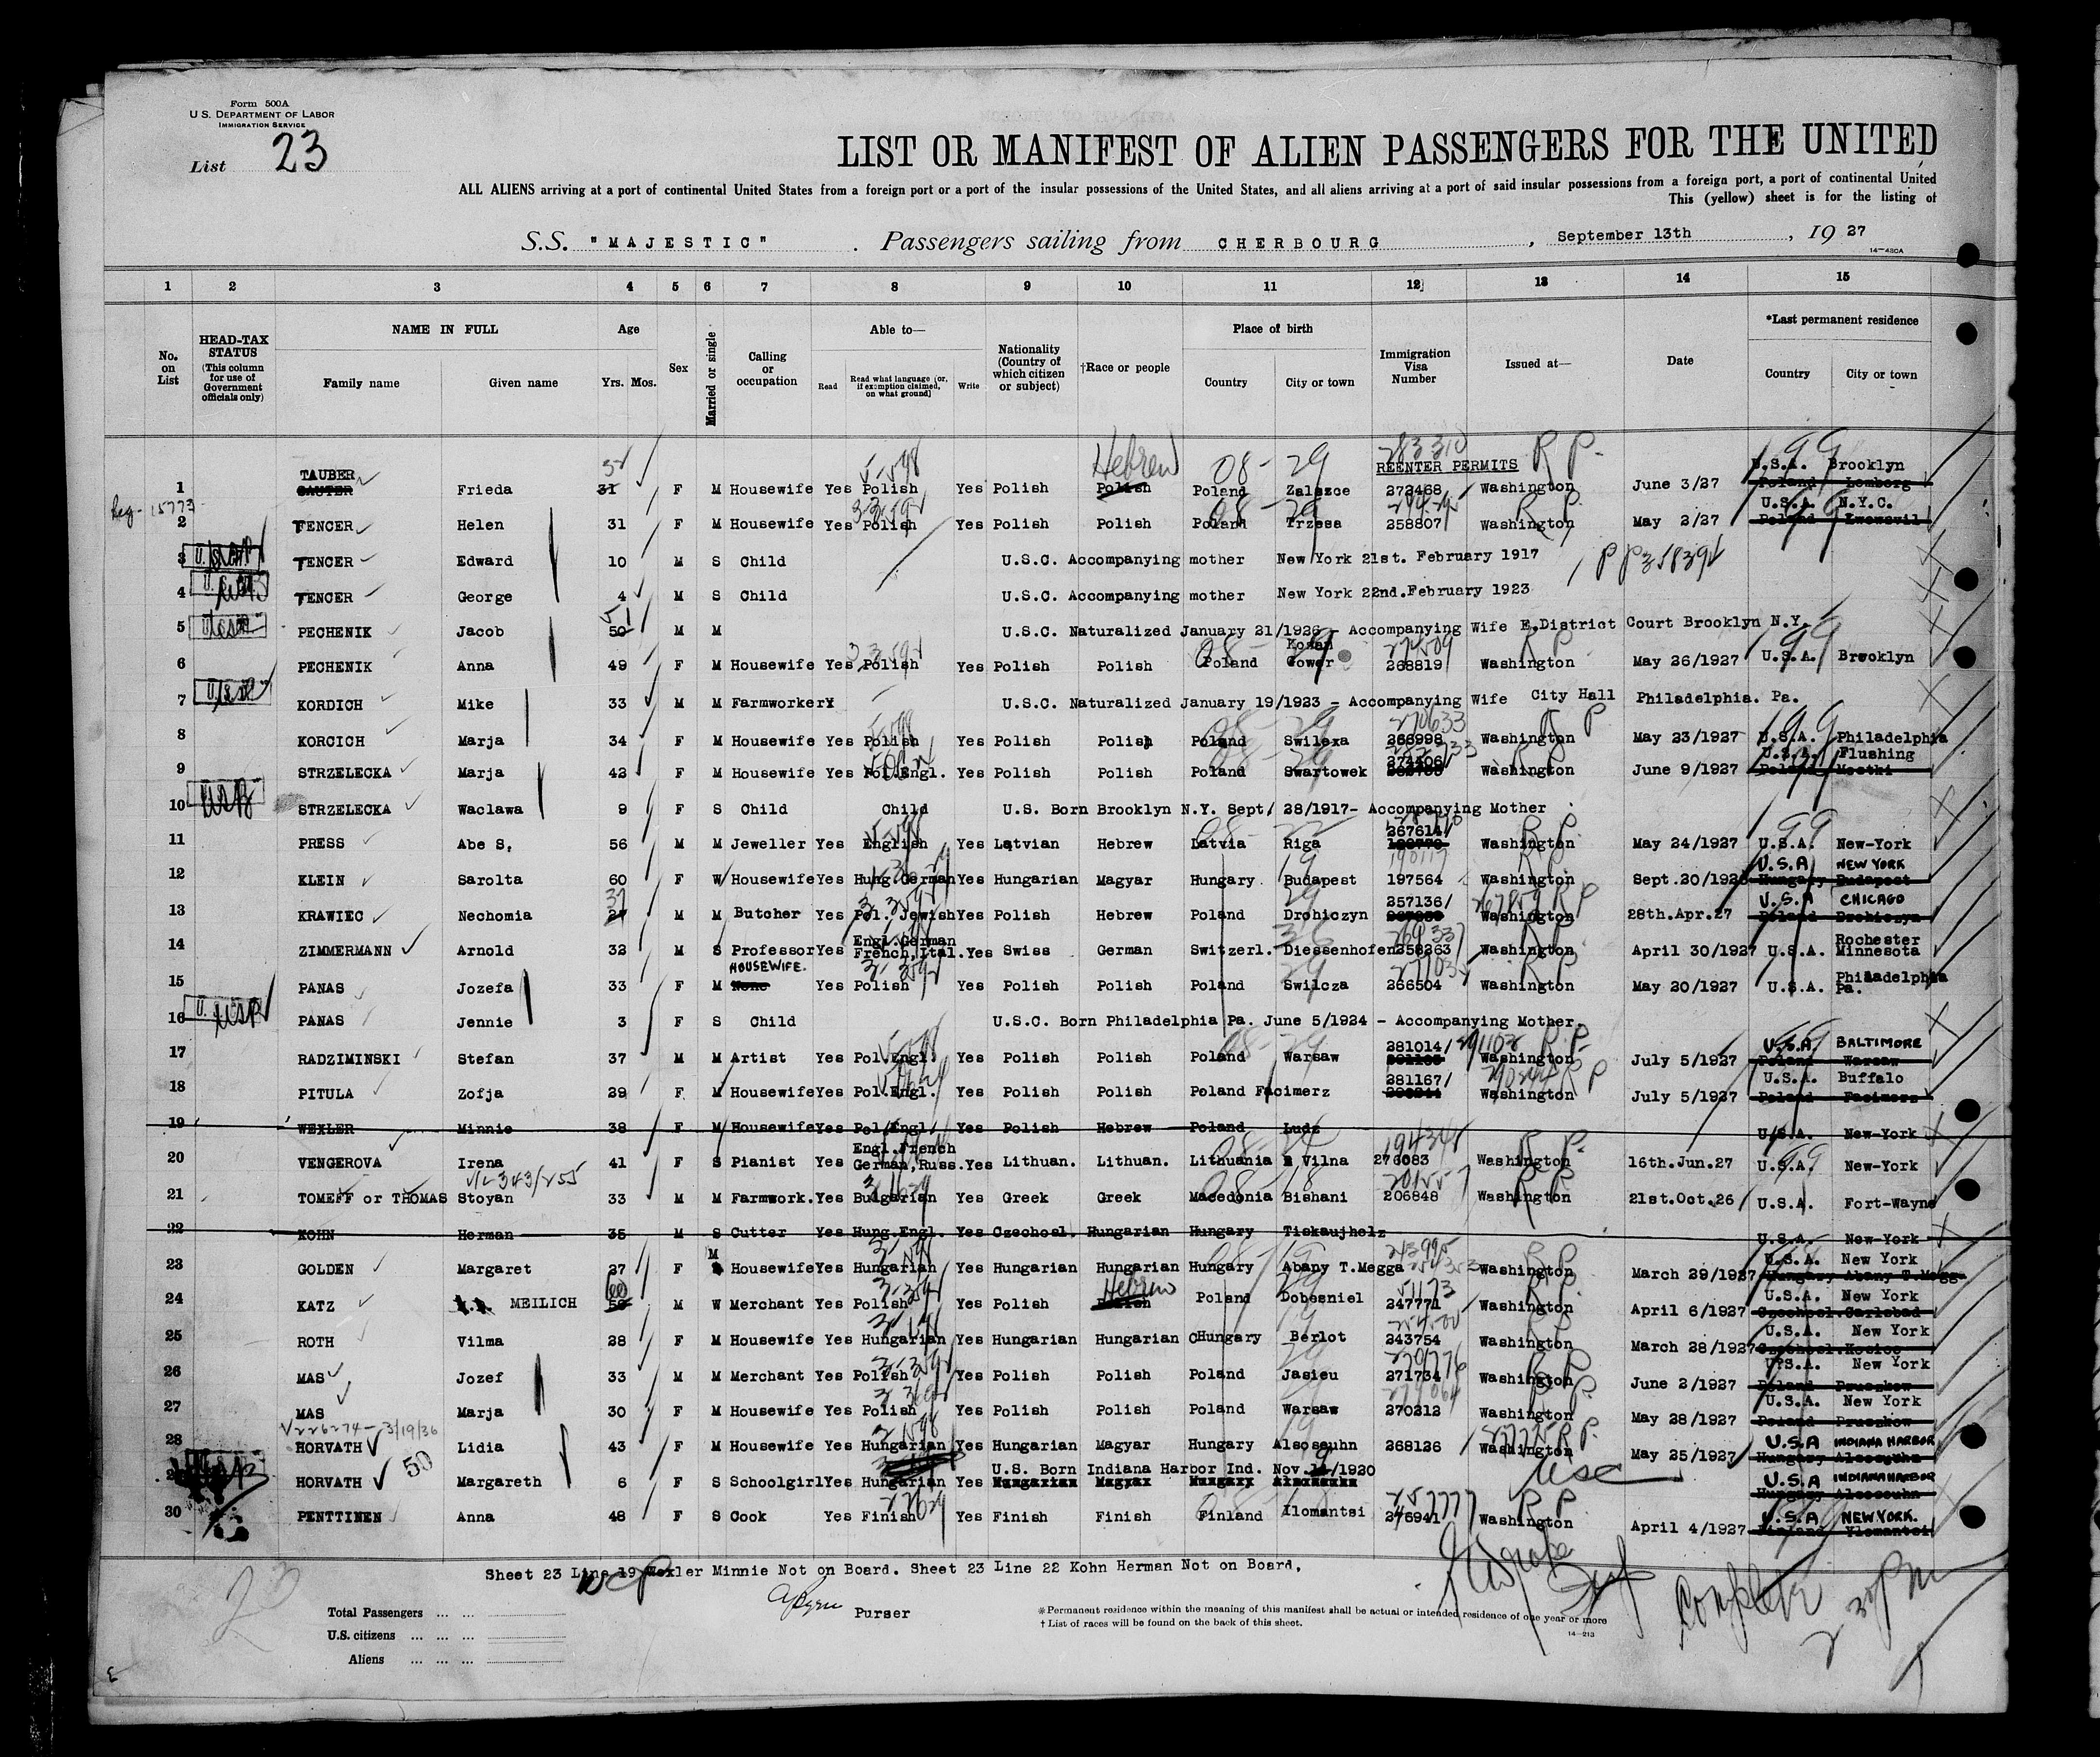 Form 500A
U. S. DEPARTMENT OF LABOR
IMMIGRATION SERVICE
List 23
LIST OR MANIFEST OF ALIEN PASSENGERS FOR THE UNITED
ALL ALIENS arriving at a port of continental United States from a foreign port or a port of the insular possessions of the United States, and all aliens arriving at a port of said insular possessions from a foreign port, a port of continental United
This (yellow) sheet is for the listing of
S.S. "MAJESTIC" . Passengers sailing from CHERBOURG , September 13th , 19 27
14-430A
1 2 3 4 5 6 7 8 9 10 11 12 13 14 15
No. on List
HEAD-TAX STATUS (This column for use of Government officials only)
NAME IN FULL Family name Given name
Age Yrs. Mos.
Sex
Married or single
Calling or occupation
Able to— Read Read what language (or, if exemption claimed, on what ground) Write
Nationality (Country of which citizen or subject)
†Race or people
Place of birth Country City or town
Immigration Visa Number
Issued at—
Date
*Last permanent residence Country City or town
283310 R P.
TAUBER Hebrew 08- 29 REENTER PERMITS U.S.A. Brooklyn
1 SAUTER Frieda 31 F M Housewife Yes Polish Yes Polish Polish Poland Zalazce 273468 Washington June 3/27 Poland Lemberg
U.S.A. N.Y.C.
2 TENCER Helen 31 F M Housewife Yes Polish Yes Polish Polish Poland Trzesa 258807 Washington May 2/27 Poland
3 TENCER Edward 10 M S Child U.S.C. Accompanying mother New York 21st. February 1917
4 TENCER George 4 M S Child U.S.C. Accompanying mother New York 22nd.February 1923
5 PECHENIK Jacob 50 M M U.S.C. Naturalized January 21/1926 - Accompanying Wife E.District Court Brooklyn N.Y.
6 PECHENIK Anna 49 F M Housewife Yes Polish Yes Polish Polish Poland Gower 268819 Washington May 26/1927 U.S.A. Brooklyn
7 KORDICH Mike 33 M M Farmworker U.S.C. Naturalized January 19/1923 - Accompanying Wife City Hall Philadelphia. Pa.
8 KORCICH Marja 34 F M Housewife Yes Polish Yes Polish Polish Poland Swilexa 266998 Washington May 23/1927 U.S.A. Philadelphia
U.S.A. Flushing
9 STRZELECKA Marja 42 F M Housewife Yes Pol.Engl. Yes Polish Polish Poland Swartowek 274406 Washington June 9/1927 Poland Mostki
10 STRZELECKA Waclawa 9 F S Child Child U.S. Born Brooklyn N.Y. Sept/ 28/1917- Accompanying Mother
11 PRESS Abe S. 56 M M Jeweller Yes English Yes Latvian Hebrew Latvia Riga 267614/ Washington May 24/1927 U.S.A. New-York
U.S.A NEW YORK
12 KLEIN Sarolta 60 F W Housewife Yes Hung.German Yes Hungarian Magyar Hungary Budapest 197564 Washington Sept.20/1926 Hungary Budapest
U.S.A CHICAGO
13 KRAWIEC Nechomia M M Butcher Yes Pol. Jewish Yes Polish Hebrew Poland Drohiczyn 257136/ Washington 28th.Apr.27 Poland Drohiczyn
14 ZIMMERMANN Arnold 32 M S Professor Yes Engl.German French,Ital. Yes Swiss German Switzerl. Diessenhofen 258263 Washington April 30/1927 U.S.A. Rochester Minnesota
HOUSEWIFE.
15 PANAS Jozefa 33 F M None Yes Polish Yes Polish Polish Poland Swilcza 266504 Washington May 20/1927 U.S.A. Philadelphia Pa.
16 PANAS Jennie 3 F S Child U.S.C. Born Philadelphia Pa. June 5/1924 - Accompanying Mother.
U.S.A BALTIMORE
17 RADZIMINSKI Stefan 37 M M Artist Yes Pol.Engl. Yes Polish Polish Poland Warsaw 281014/ Washington July 5/1927 Poland Warsaw
U.S.A. Buffalo
18 PITULA Zofja 29 F M Housewife Yes Pol.Engl. Yes Polish Polish Poland Facimerz 281167/ Washington July 5/1927 Poland Facimerz
19 WEXLER Minnie 38 F M Housewife Yes Pol/Engl/ Yes Polish Hebrew Poland Ludz U.S.A. New-York
20 VENGEROVA Irena 41 F S Pianist Yes Engl.French German,Russ. Yes Lithuan. Lithuan. Lithuania Vilna 276083 Washington 16th.Jun.27 U.S.A. New-York
21 TOMEFF or THOMAS Stoyan 33 M M Farmwork. Yes Bulgarian Yes Greek Greek Macedonia Bishani 206848 Washington 21st.Oct.26 U.S.A. Fort-Wayne
22 KOHN Herman 35 M S Cutter Yes Hung.Engl. Yes Czechosl. Hungarian Hungary Tiskaujhelz U.S.A. New-York
M U.S.A. New York
23 GOLDEN Margaret 27 F Housewife Yes Hungarian Yes Hungarian Hungarian Hungary Abany T.Megga Washington March 29/1927 Hungary Abany T.Megg
Hebrew U.S.A. New York
24 KATZ MEILICH M W Merchant Yes Polish Yes Polish Polish Poland Dobesniel 247771 Washington April 6/1927 Czechosl.Carlsbad
U.S.A. New York
25 ROTH Vilma 28 F M Housewife Yes Hungarian Yes Hungarian Hungarian Hungary Berlot 243754 Washington March 28/1927 Czechosl.Kosice
U.S.A. New York
26 MAS Jozef 33 M M Merchant Yes Polish Yes Polish Polish Poland Jasieu 271734 Washington June 2/1927 Poland Pruszkow
U.S.A. New York
27 MAS Marja 30 F M Housewife Yes Polish Yes Polish Polish Poland Warsaw 270212 Washington May 28/1927 Poland Pruszkow
226274 - 3/19/36 U.S.A INDIANA HARBOR
28 HORVATH Lidia 43 F M Housewife Yes Hungarian Yes Hungarian Magyar Hungary Alsosouhn 268126 Washington May 25/1927 Hungary
U.S. Born Indiana Harbor Ind. Nov. /1920 USC U.S.A INDIANA HARBOR
HORVATH Margareth 6 F S Schoolgirl Yes Hungarian Yes Hungarian Magyar Hungary
U.S.A NEW YORK.
30 PENTTINEN Anna 48 F S Cook Yes Finish Yes Finish Finish Finland Ilomantsi 276941 Washington April 4/1927 Finland Ylomantsi
Sheet 23 Line 19 Wexler Minnie Not on Board. Sheet 23 Line 22 Kohn Herman Not on Board.
Purser
Total Passengers ... ...
U.S. citizens ... ... ...
Aliens ... ... ...
*Permanent residence within the meaning of this manifest shall be actual or intended residence of one year or more
† List of races will be found on the back of this sheet.
14-213
Complete
23